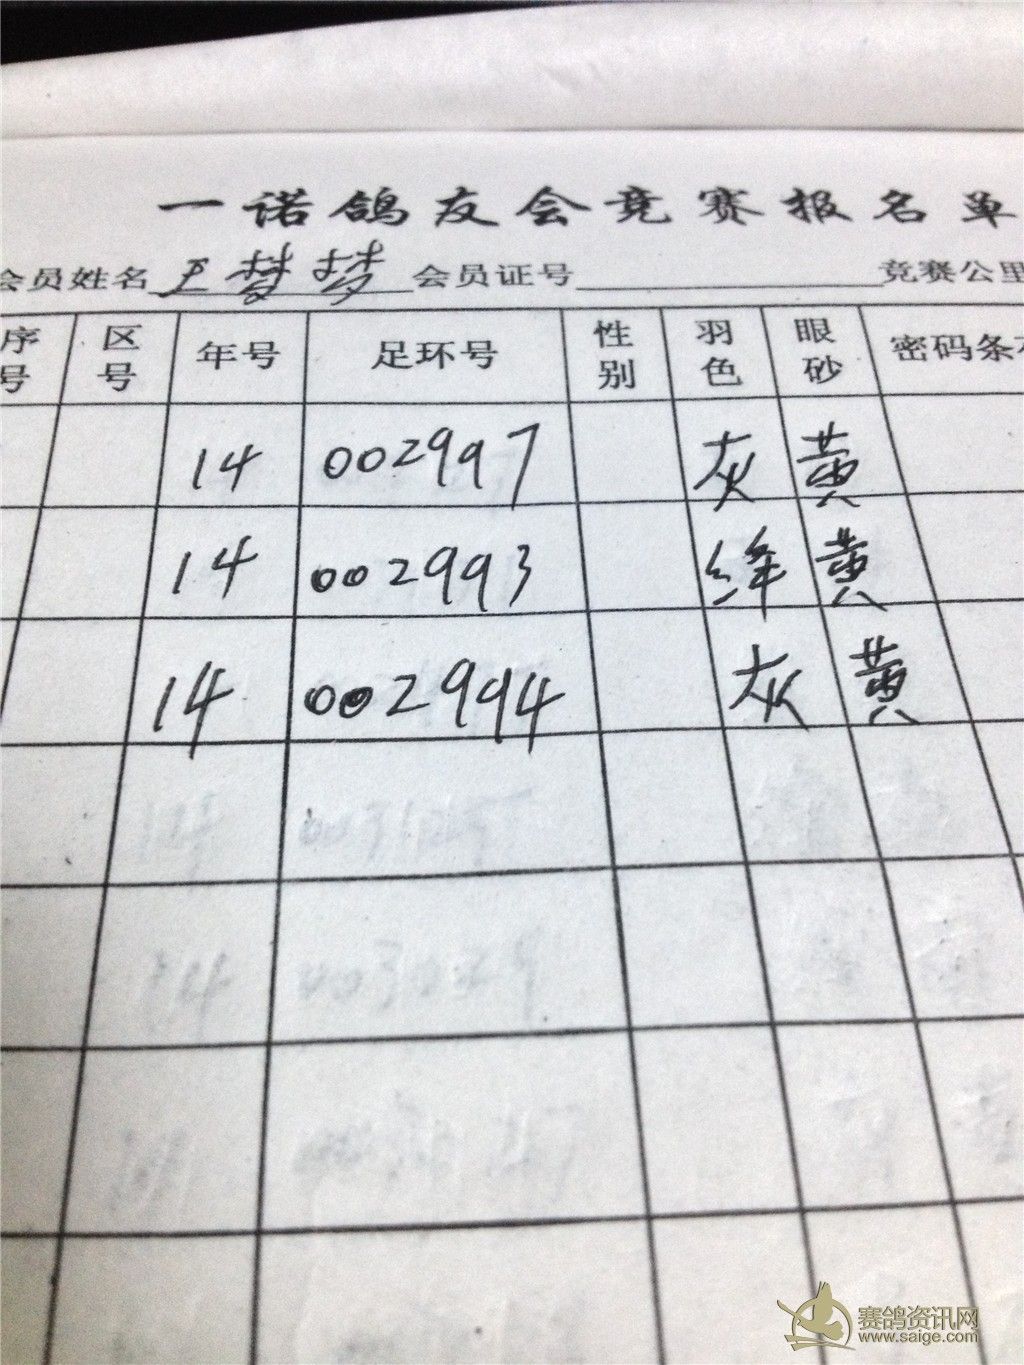 一诺鸽友会竞赛报名单
会员姓名 王梦梦 会员证号 竞赛公里
序号 区号 年号 足环号 性别 羽色 眼砂 密码条
14 002997 灰 黄
14 002993 绛 黄
14 002994 灰 黄
赛鸽资讯网
www.saige.com